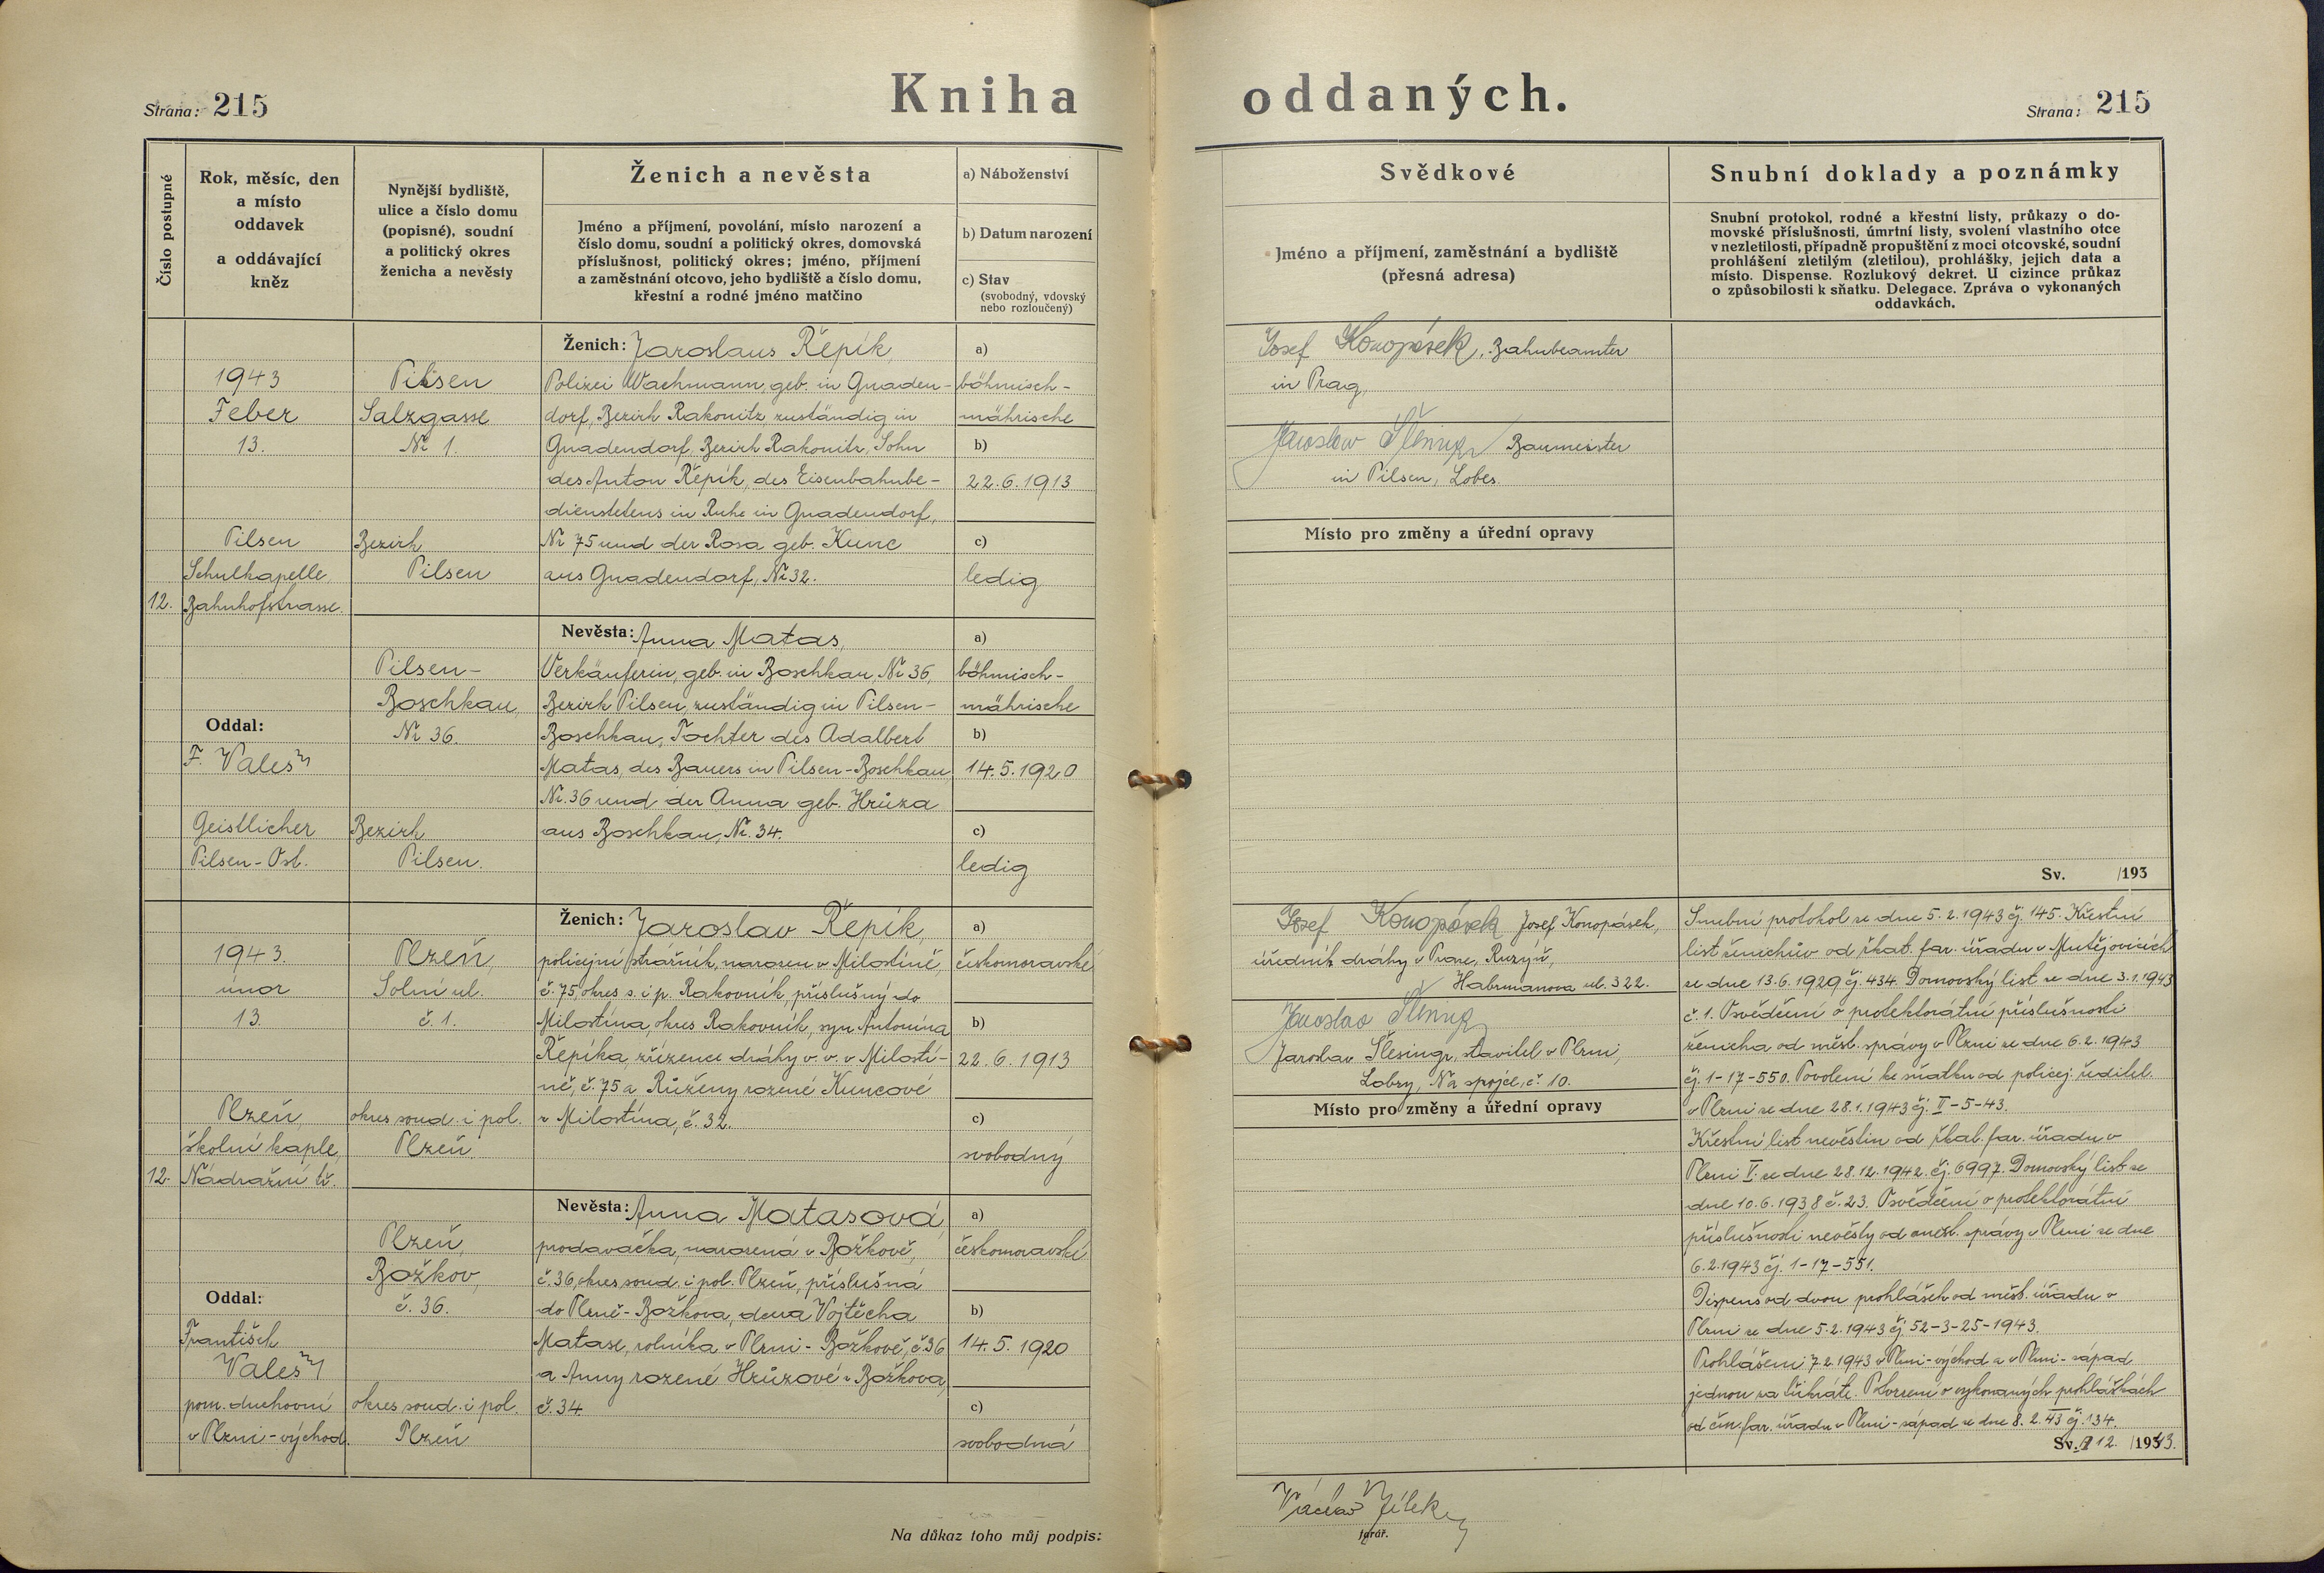 Strana: 215
Kniha oddaných.
Strana: 215
Číslo postupné
Rok, měsíc, den
a místo
oddavek
a oddávající
kněz
Nynější bydliště,
ulice a číslo domu
(popisné), soudní
a politický okres
ženicha a nevěsty
Ženich a nevěsta
Jméno a příjmení, povolání, místo narození a
číslo domu, soudní a politický okres, domovská
příslušnost, politický okres; jméno, příjmení
a zaměstnání otcovo, jeho bydliště a číslo domu,
křestní a rodné jméno matčino
a) Náboženství
b) Datum narození
c) Stav
(svobodný, vdovský
nebo rozloučený)
Svědkové
Jméno a příjmení, zaměstnání a bydliště
(přesná adresa)
Snubní doklady a poznámky
Snubní protokol, rodné a křestní listy, průkazy o do-
movské příslušnosti, úmrtní listy, svolení vlastního otce
v nezletilosti, případně propuštění z moci otcovské, soudní
prohlášení zletilým (zletilou), prohlášky, jejich data a
místo. Dispense. Rozlukový dekret. U cizince průkaz
o způsobilosti k sňatku. Delegace. Zpráva o vykonaných
oddavkách.
12.
1943
Feber
13.
Pilsen
Schulkapelle
Bahnhofstrasse.
Oddal:
F. Valeš
Geistlicher
Pilsen-Ost.
Pilsen
Salzgasse
Nr 1.
Bezirk
Pilsen
Pilsen-
Boschkau,
Nr 36.
Bezirk
Pilsen.
Ženich: Jaroslaus Řepík,
Polizei Wachmann, geb. in Gnaden-
dorf, Bezirk Rakonitz, zuständig in
Gnadendorf, Bezirk Rakonitz, Sohn
des Anton Řepík, des Eisenbahnbe-
dienstetens in Ruhe in Gnadendorf,
Nr 75 und der Rosa geb. Kunc
aus Gnadendorf, Nr 32.
a)
böhmisch-
mährische
b)
22.6.1913
c)
ledig
Nevěsta: Anna Matas,
Verkäuferin, geb. in Boschkau, Nr 36,
Bezirk Pilsen, zuständig in Pilsen-
Boschkau, Tochter des Adalbert
Matas, des Bauers in Pilsen-Boschkau,
Nr. 36 und der Anna geb. Hrůza
aus Boschkau, Nr. 34.
a)
böhmisch-
mährische
b)
14.5.1920
c)
ledig
Josef Konopásek, Bahnbeamter
in Prag,
Jaroslav Šlesingr, Baumeister
in Pilsen, Lobes.
Místo pro změny a úřední opravy
Sv. /193
12.
1943.
únor
13.
Plzeň,
školní kaple,
Nádražní tř.
Oddal:
František
Valeš
pom. duchovní
v Plzni-východ.
Plzeň,
Solní ul.
č. 1.
okres soud. i pol.
Plzeň.
Plzeň,
Božkov,
č. 36.
okres soud. i pol.
Plzeň
Ženich: Jaroslav Řepík,
policejní strážník, narozen v Milostíně,
č. 75, okres s. i p. Rakovník, příslušný do
Milostína, okres Rakovník, syn Antonína
Řepíka, zřízence dráhy v. v. v Milostí-
ně, č. 75 a Růženy rozené Kuncové
z Milostína, č. 32.
a)
českomoravské
b)
22.6.1913
c)
svobodný
Nevěsta: Anna Matasová
prodavačka, narozená v Božkově,
č. 36, okres soud. i pol. Plzeň, příslušná
do Plzně-Božkova, dcera Vojtěcha
Matase, rolníka v Plzni-Božkově, č. 36
a Anny rozené Hrůzové z Božkova,
č. 34.
a)
českomoravské
b)
14.5.1920
c)
svobodná
Josef Konopásek Josef Konopásek,
úředník dráhy v Praze, Ruzyň,
Habrmanova ul. 322.
Jaroslav Šlesingr
Jaroslav Šlesingr, stavitel v Plzni,
Lobzy, Na spojce, č. 10.
Místo pro změny a úřední opravy
Snubní protokol ze dne 5.2.1943 čj. 145. Křestní
list ženichův od řkat. far. úřadu v Mutějovicích
ze dne 13.6.1929 čj. 434. Domovský list ze dne 3.1.1943
č. 1. Osvědčení o protektorátní příslušnosti
ženicha od měst. správy v Plzni ze dne 6.2.1943
čj. 1-17-550. Povolení ke sňatku od policej. ředitel.
v Plzni ze dne 28.1.1943 čj. II-5-43.
Křestní list nevěstin od řkat. far. úřadu v
Plzni V. ze dne 28.12.1942. čj. 6997. Domovský list ze
dne 10.6.1938 č. 23. Osvědčení o protektorátní
příslušnosti nevěsty od měst. správy v Plzni ze dne
6.2.1943 čj. 1-17-551.
Dispens od dvou prohlášek od měst. úřadu v
Plzni ze dne 5.2.1943 čj. 52-3-25-1943.
Prohlášeni 7.2.1943 v Plzni-východ a v Plzni-západ
jednou za třikráte. Potvrzení o vykonaných prohláškách
od čm. far. úřadu v Plzni-západ ze dne 8.2.43 čj. 134.
Sv. 12. /1943.
Na důkaz toho můj podpis:
Václav Jílek
farář.